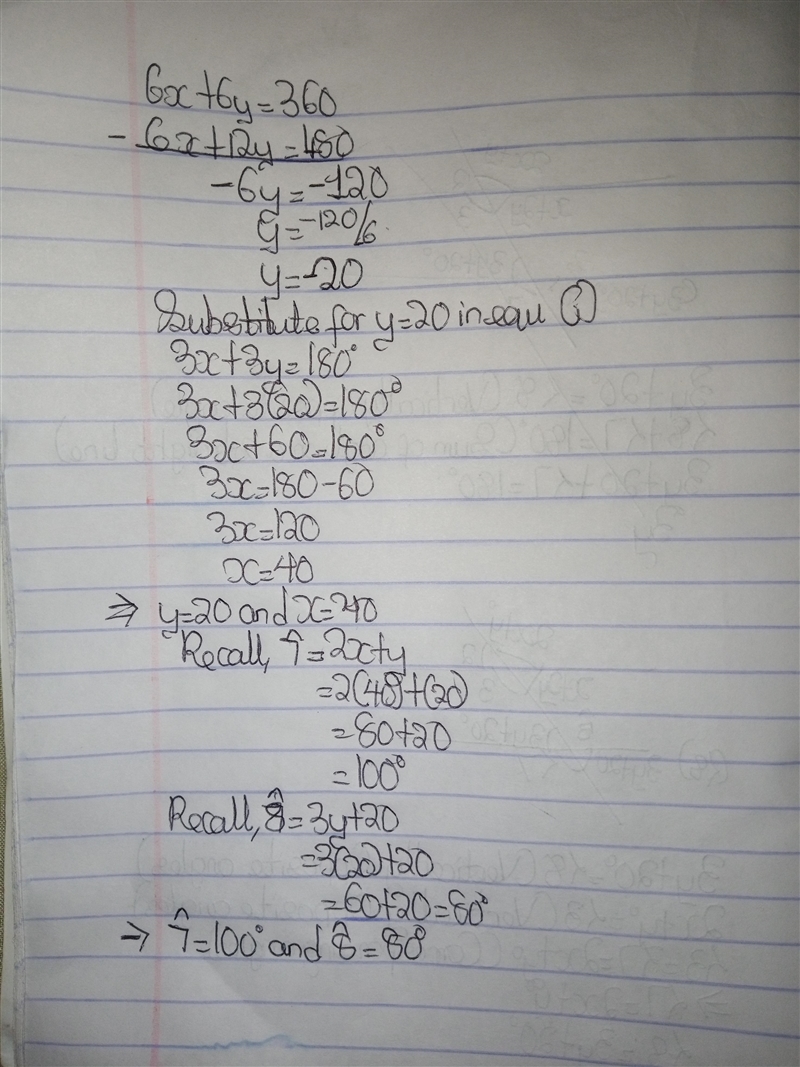 6x+6y=360
- 6x+12y=480
-6y=-120
y=-120/6
y=-20
Substitute for y=20 in equ (i)
3x+3y=180°
3x+3(20)=180°
3x+60=180°
3x=180-60
3x=120
x=40
⇒ y=20 and x=40
Recall, 7̂=2x+y
=2(40)+(20)
=80+20
=100°
Recall, 8̂=3y+20
=3(20)+20
=60+20=80°
→ 7̂=100° and 8̂=80°